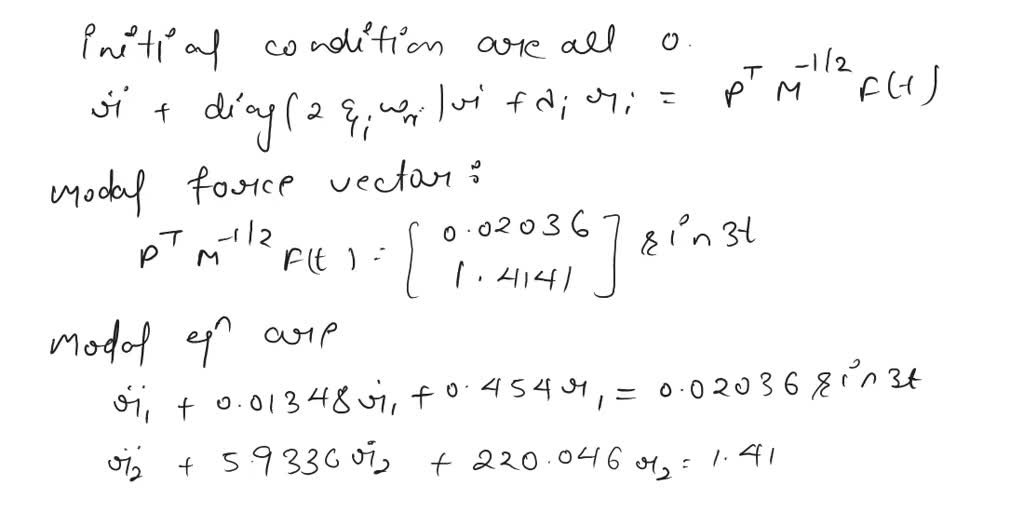 initial condition are all 0.
r̈i + diag(2 ξi ωni) ṙi + λi ri = P^T M^-1/2 F(t)
modal force vector:
P^T M^-1/2 F(t) = [0.02036
1.4141] sin3t
Modal eqn are
r̈1 + 0.01348 ṙ1 + 0.454 r1 = 0.02036 sin3t
r̈2 + 5.9330 ṙ2 + 220.046 r2 = 1.41